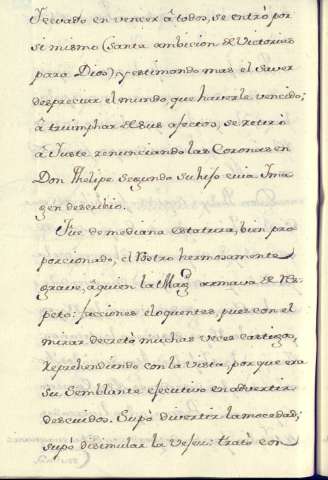 Jecuado en vencer â todos, se entrò por
si mismo (Santa ambicion de Victorias
para Dios) y estimondo mas el saver
despreciar el mundo, que haverle vencido;
â triumphar de sus afectos, se retirò
â Juste renunciando las Coronas en
Don Phelipe segundo su hijo cuia Ima
gen describio.
Fue de mediana estatura, bien pro
porcionado, el Rostro hermosamente
grave, â quien la Magᵈ armava de Res
peto: facciones eloquentes, pues con el
mirar decretò muchas veces castigos,
Reprehendiendo con la vista, porque era
su Semblante executivo en advertir
descuidos. Supò divertir la mocedad;
supò disimular la vejez: tratò con